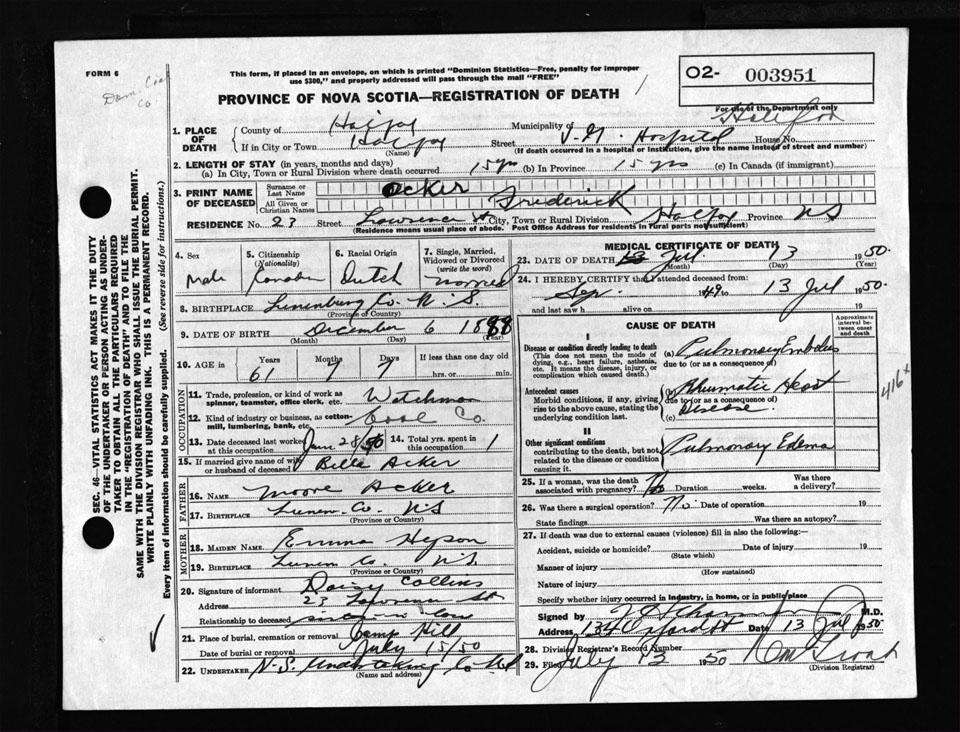 FORM 6
Dom. Coal
Co
This form, if placed in an envelope, on which is printed "Dominion Statistics—Free, penalty for improper
use $300," and properly addressed will pass through the mail "FREE"
PROVINCE OF NOVA SCOTIA—REGISTRATION OF DEATH
02- 003951
For use of the Department only
1. PLACE OF DEATH County of Halifax Municipality of Halifax
If in City or Town Halifax (Name) Street V.G. Hospital House No.
(If death occurred in a hospital or institution, give the name instead of street and number)
2. LENGTH OF STAY (in years, months and days)
(a) In City, Town or Rural Division where death occurred 15 yrs (b) In Province 15 yrs (c) In Canada (if immigrant)
3. PRINT NAME OF DECEASED Surname or Last Name Acker
All Given or Christian Names Frederick
RESIDENCE No. 23 Street Lawrence St City, Town or Rural Division Halifax Province NS
(Residence means usual place of abode. Post Office Address for residents in rural parts not sufficient)
SEC. 46—VITAL STATISTICS ACT MAKES IT THE DUTY
OF THE UNDERTAKER OR PERSON ACTING AS UNDER-
TAKER TO OBTAIN ALL THE PARTICULARS REQUIRED
IN THE "REGISTRATION OF DEATH" AND TO FILE THE
SAME WITH THE DIVISION REGISTRAR WHO SHALL ISSUE THE BURIAL PERMIT.
WRITE PLAINLY WITH UNFADING INK. THIS IS A PERMANENT RECORD.
Every item of information should be carefully supplied. (See reverse side for instructions.)
4. Sex Male
5. Citizenship (Nationality) Canada
6. Racial Origin Dutch
7. Single, Married, Widowed or Divorced (write the word) Married
8. BIRTHPLACE Lunenburg Co. N.S.
(Province or Country)
9. DATE OF BIRTH December 6 1888
(Month) (Day) (Year)
10. AGE in Years 61 Months 7 Days 7 If less than one day old hrs. or min.
OCCUPATION
11. Trade, profession, or kind of work as spinner, teamster, office clerk, etc. Watchman
12. Kind of industry or business, as cotten-mill, lumbering, bank, etc. Coal Co.
13. Date deceased last worked at this occupation Jan 28/50 14. Total yrs. spent in this occupation 1
15. If married give name of wife or husband of deceased Bella Acker
FATHER
16. NAME Moore Acker
17. BIRTHPLACE Lunen. Co. NS
(Province or Country)
MOTHER
18. MAIDEN NAME Emma Hepson
19. BIRTHPLACE Lunen Co. N.S.
(Province or Country)
20. Signature of informant Daisy Collins
Address 23 Lawrence St
Relationship to deceased sister in law
21. Place of burial, cremation or removal Camp Hill
Date of burial or removal July 15/50
22. UNDERTAKER N-S. Undertaking Co Ltd
(Name and address)
MEDICAL CERTIFICATE OF DEATH
23. DATE OF DEATH Jul. 13 1950
(Month) (Day) (Year)
24. I HEREBY CERTIFY that I attended deceased from
Sep. 1949 to 13 Jul 1950.
and last saw h alive on 19
CAUSE OF DEATH
Approximate interval between onset and death
I
Disease or condition directly leading to death
(This does not mean the mode of dying, e.g., heart failure, asthenia, etc. It means the disease, injury, or complication which caused death.)
(a) Pulmonary Embolus
due to (or as a consequence of)
Antecedent causes
Morbid conditions, if any, giving rise to the above cause, stating the underlying condition last.
(b) Rheumatic Heart
due to (or as a consequence of)
Disease.
(c)
416
II
Other significant conditions
contributing to the death, but not related to the disease or condition causing it.
Pulmonary Edema
25. If a woman, was the death associated with pregnancy? No Duration weeks. Was there a delivery?
26. Was there a surgical operation? No Date of operation 19
State findings Was there an autopsy?
27. If death was due to external causes (violence) fill in also the following:
Accident, suicide or homicide? Date of injury 19
(State which)
Manner of injury
(How sustained)
Nature of injury
Specify whether injury occurred in industry, in home, or in public place
Signed by M.D.
Address Date 13 Jul 1950
28. Division Registrar's Record Number
29. Filed July 13 1950
(Division Registrar)